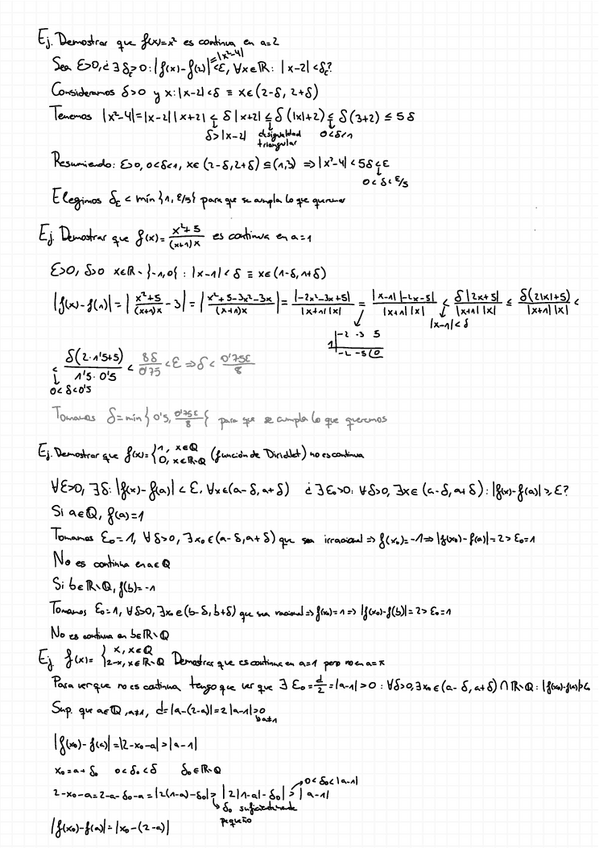 Ej. Demostrar que f(x)=x² es continua en a=2
Sea ε>0, ¿∃ δε>0 : |f(x)-f(2)|=|x²-4|<ε, ∀x∈ℝ : |x-2|<δε?
Consideramos δ>0 y x: |x-2|<δ ≡ x∈(2-δ, 2+δ)
Tenemos |x²-4|=|x-2||x+2| ≤ δ|x+2| ≤ δ(|x|+2) ≤ δ(3+2) ≤ 5δ
δ>|x-2| desigualdad triangular 0<δ<1
Resumiendo: ε>0, 0<δ<1, x∈(2-δ, 2+δ)⊆(1,3) ⇒ |x²-4|<5δ≤ε
0<δ<ε/5
Elegimos δε < mín{1, ε/5} para que se cumpla lo que queremos
Ej Demostrar que f(x)= (x²+5)/((x+1)x) es continua en a=1
ε>0, δ>0 x∈ℝ∖{-1,0} : |x-1|<δ ≡ x∈(1-δ, 1+δ)
|f(x)-f(1)|=|(x²+5)/((x+1)x) - 3|=|(x²+5-3x²-3x)/((x+1)x)|=|-2x²-3x+5|/(|x+1||x|) = |x-1||-2x-5|/(|x+1||x|) < δ|2x+5|/(|x+1||x|) ≤ δ(2|x|+5)/(|x+1||x|) <
|x-1|<δ
-2 -3 5
1
-2 -5 0
< δ(2·1'5+5)/(1'5·0'5) < 8δ/0'75 < ε ⇒ δ < 0'75ε/8
0<δ<0'5
Tomamos δ=mín{0'5, 0'75ε/8} para que se cumpla lo que queremos
Ej. Demostrar que f(x)={1, x∈ℚ 0, x∈ℝ∖ℚ (función de Dirichlet) no es continua
∀ε>0, ∃δ: |f(x)-f(a)|<ε, ∀x∈(a-δ, a+δ) ¿∃ε₀>0: ∀δ>0, ∃x∈(a-δ, a+δ): |f(x)-f(a)|≥ε?
Si a∈ℚ, f(a)=1
Tomamos ε₀=1, ∀δ>0, ∃x₀∈(a-δ, a+δ) que sea irracional ⇒ f(x₀)=-1 ⇒ |f(x₀)-f(a)|=2>ε₀=1
No es continua en a∈ℚ
Si b∈ℝ∖ℚ, f(b)=-1
Tomamos ε₀=1, ∀δ>0, ∃x₀∈(b-δ, b+δ) que sea racional ⇒ f(x₀)=1 ⇒ |f(x₀)-f(b)|=2>ε₀=1
No es continua en b∈ℝ∖ℚ
Ej f(x)={x, x∈ℚ 2-x, x∈ℝ∖ℚ Demostrar que es continua en a=1 pero no en a≠x
Para ver que no es continua tengo que ver que ∃ ε₀=d/2=|a-1|>0 : ∀δ>0, ∃x₀∈(a-δ, a+δ)∩ℝ∖ℚ : |f(x₀)-f(a)|>ε₀
Sup. que a∈ℚ, a≠1, d=|a-(2-a)|=2|a-1|>0
|f(x₀)-f(a)|=|2-x₀-a|>|a-1|
x₀=a+δ₀ 0<δ₀<δ δ₀∈ℝ∖ℚ
2-x₀-a=2-a-δ₀-a=|2(1-a)-δ₀|≥|2|1-a|-δ₀|>|a-1|
0<δ₀<|a-1|
δ₀ suficientemente pequeño
|f(x₀)-f(a)|=|x₀-(2-a)|